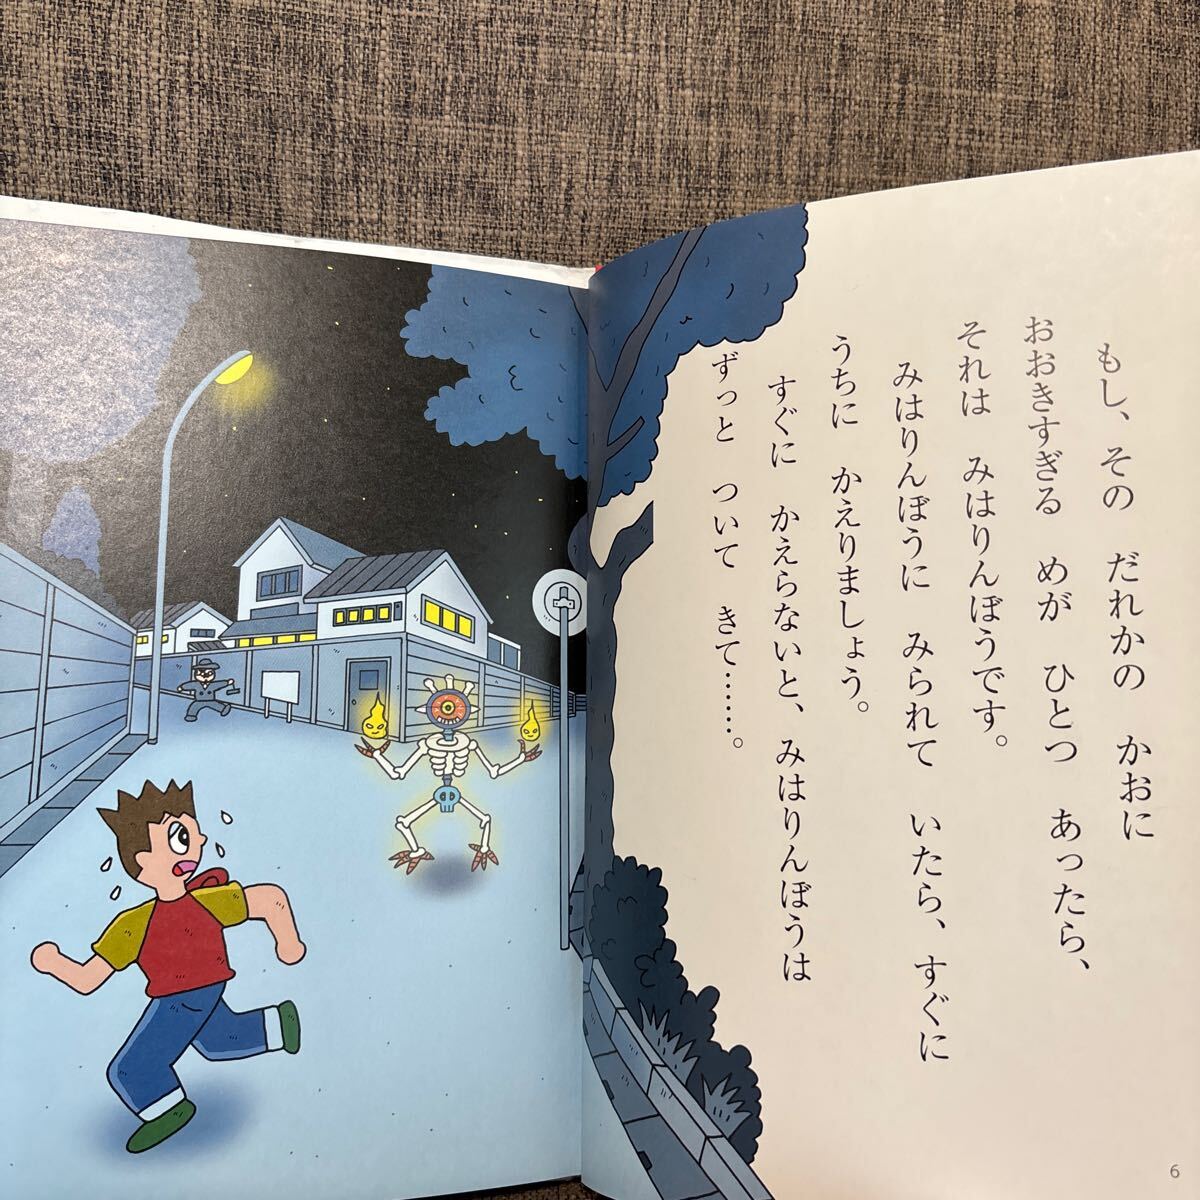 もし、その　だれかの　かおに
おおきすぎる　めが　ひとつ　あったら、
それは　みはりんぼうです。
みはりんぼうに　みられて　いたら、すぐに
うちに　かえりましょう。
すぐに　かえらないと、みはりんぼうは
ずっと　ついて　きて……。
6